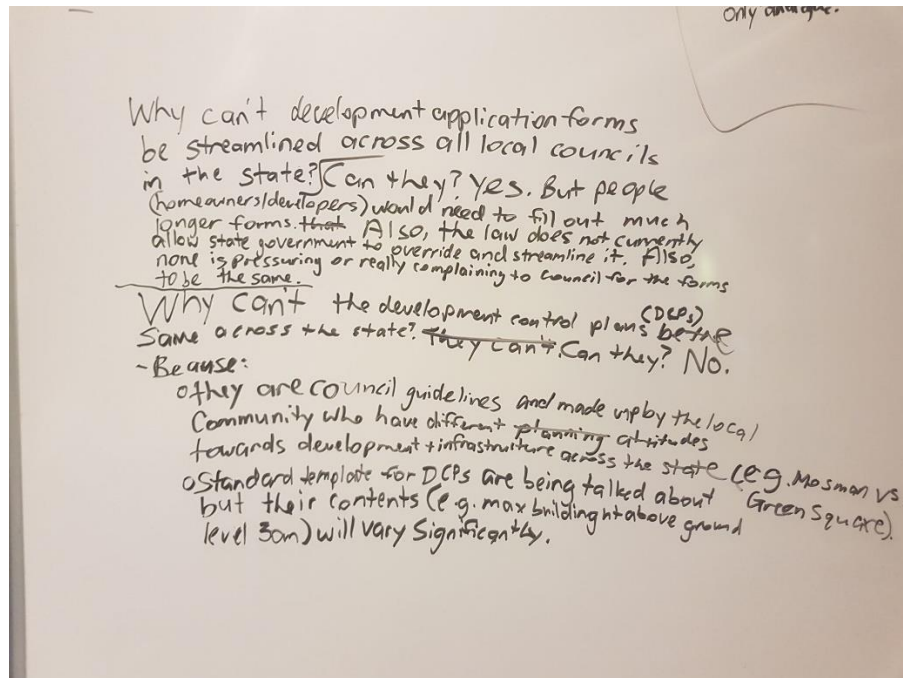 only analogue.
Why can't development application forms
be streamlined across all local councils
in the state? Can they? Yes. But people
(homeowners/developers) would need to fill out much
longer forms. that Also, the law does not currently
allow state government to override and streamline it. Also,
none is pressuring or really complaining to council for the forms
to be the same.
Why can't the development control plans (DCPs) be the
same across the state? They can't. Can they? No.
- Beause:
o they are council guidelines and made up by the local
community who have different planning attitudes
towards development + infrastructure across the state (e.g. Mosman vs
Green Square).
o Standard template for DCPs are being talked about
but their contents (e.g. max building ht above ground
level 30m) will vary significantly.